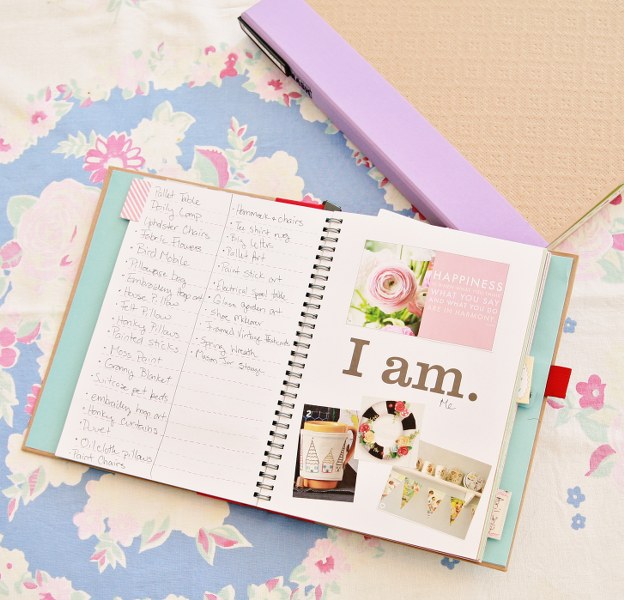 Pallet Table
Doily Lamp
Upholster Chairs
Fabric Flowers
Bird Mobile
Pillowcase bag
Embroidery hoop art
House Pillow
Felt Pillow
Hanky Pillows
Painted sticks
Moss Paint
Granny Blanket
Suitcase pet beds
embroidery hoop art
Hanky Curtains
Duvet
Oilcloth pillows
Paint Chairs
Hammock & chairs
Tee Shirt rug
Big letters
Pallet Art
Paint stick art
Electrical Spool table
Glass garden art
Shoe Makeover
Framed Vintage
Spring Wreath
Mason Jar
HAPPINESS
WHAT YOU SAY
AND WHAT YOU DO
ARE IN HARMONY.
I am.
Me